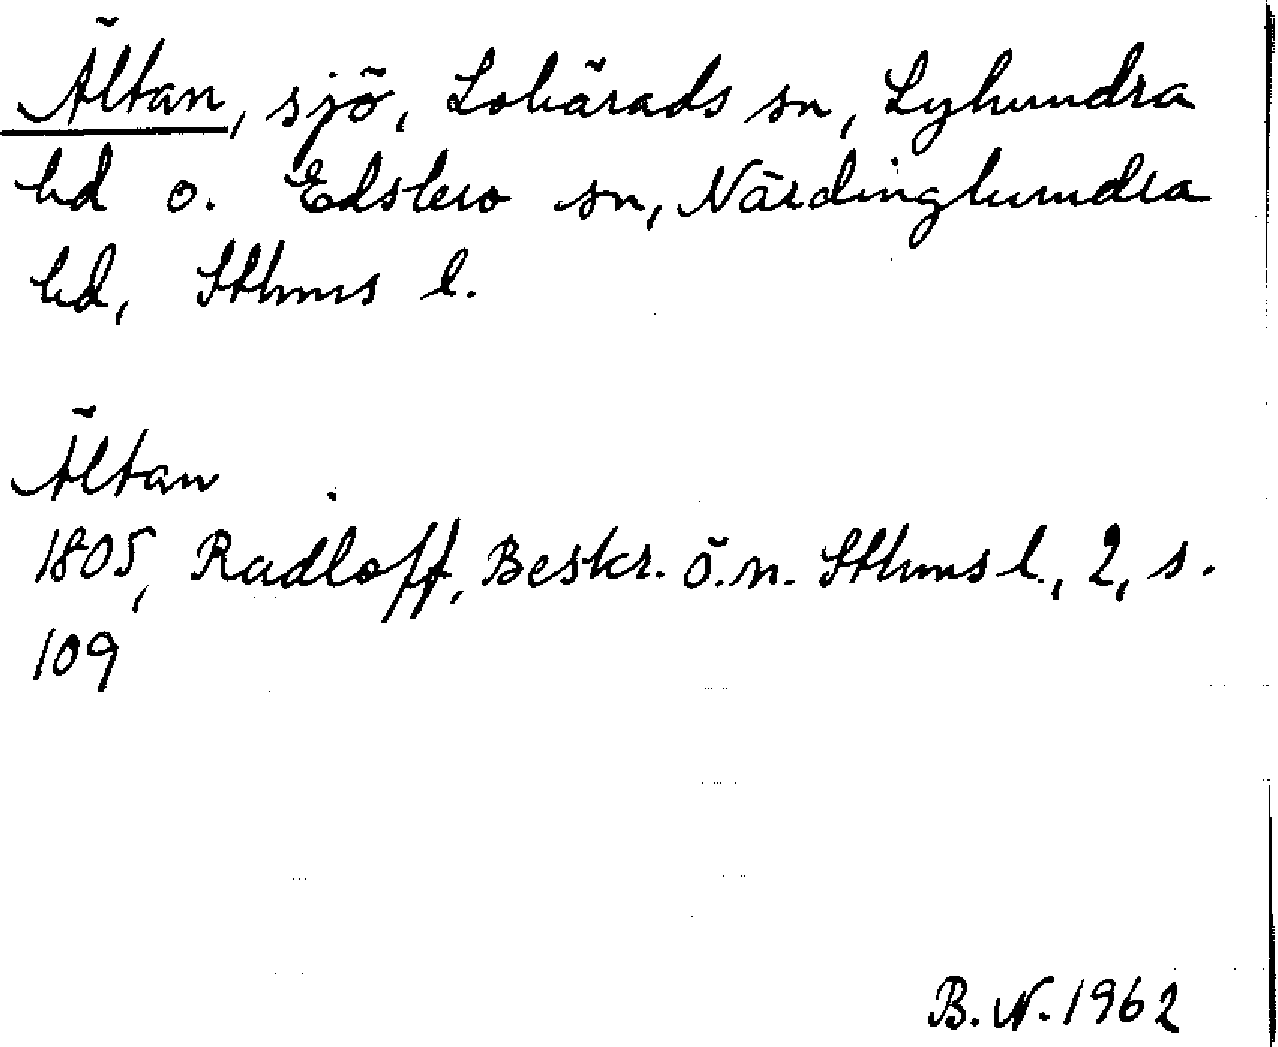 Ältan, sjö, Lohärads sn, Lyhundra
hd o. Edsbro sn, Närdinghundra
hd, Sthms l.
Ältan
1805, Radloff, Beskr. ö. n. Sthms l., 2, s.
109
B. N. 1962